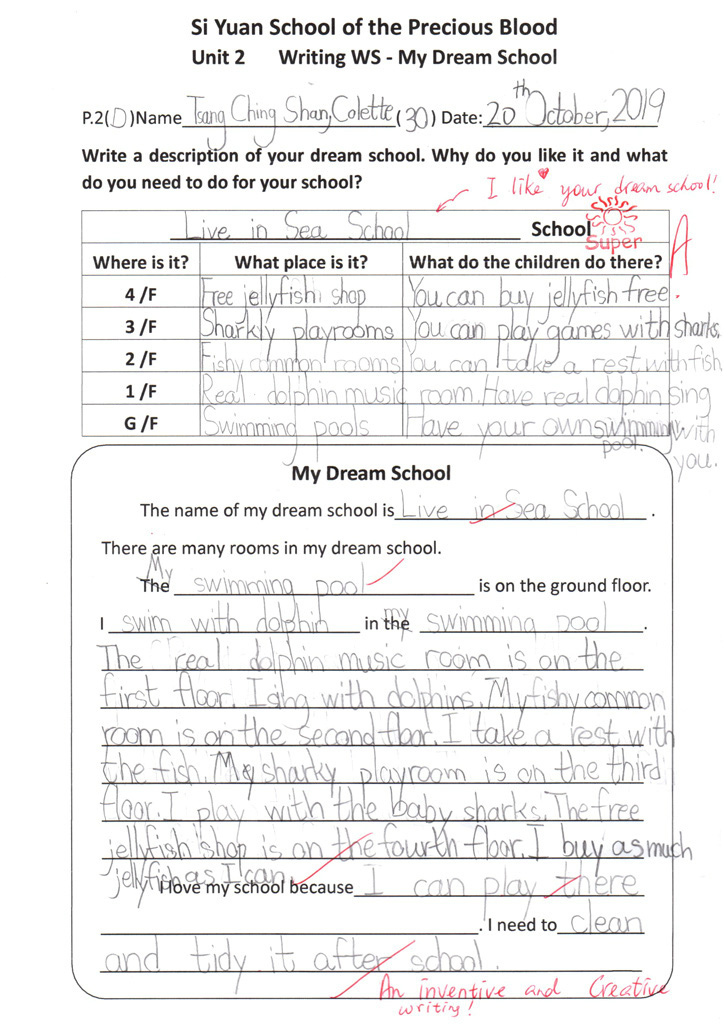 Si Yuan School of the Precious Blood
Unit 2 Writing WS - My Dream School
P.2(D)Name Tsang Ching Shan, Colette (30) Date: 20th October, 2019
Write a description of your dream school. Why do you like it and what
do you need to do for your school?
I like your dream school!
Live in Sea School School
Super
A
Where is it? What place is it? What do the children do there?
4 /F Free jellyfish shop You can buy jellyfish free.
3 /F Sharkly playrooms You can play games with sharks.
2 /F Fishy common rooms You can take a rest with fish
1 /F Real dolphin music room. Have real dolphin sing with you.
G /F Swimming pools Have your own swimming pool.
My Dream School
The name of my dream school is Live in Sea School .
There are many rooms in my dream school.
My
The swimming pool is on the ground floor.
I swim with dolphin in the my swimming pool .
The real dolphin music room is on the
first floor. I sing with dolphins. My fishy common
room is on the second floor. I take a rest with
the fish. My sharky playroom is on the third
floor. I play with the baby sharks. The free
jellyfish shop is on the fourth floor. I buy as much
jellyfish as I can.
I love my school because I can play there
. I need to clean
and tidy it after school.
An inventive and Creative
writing!